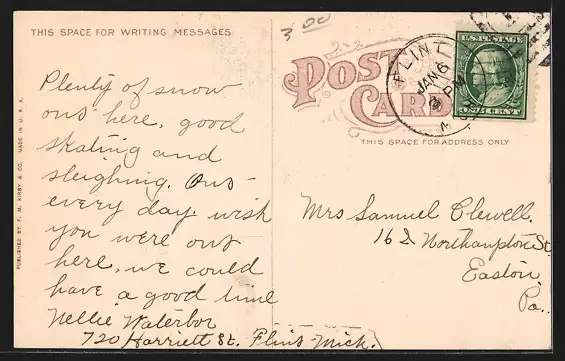 THIS SPACE FOR WRITING MESSAGES
Plenty of snow
out here, good
skating and
sleighing. Out
every day. wish
you were out
here, we could
have a good time
Nellie Waterbor
720 Harriett St. Flint Mich.
PUBLISHED BY F. M. KIRBY & CO. MADE IN U. S. A.
3 00
POST CARD
THIS SPACE FOR ADDRESS ONLY
FLINT
JAN 6
PM
U.S. POSTAGE
ONE CENT
Mrs Samuel Clewell.
162 Northampton St
Easton
Pa.